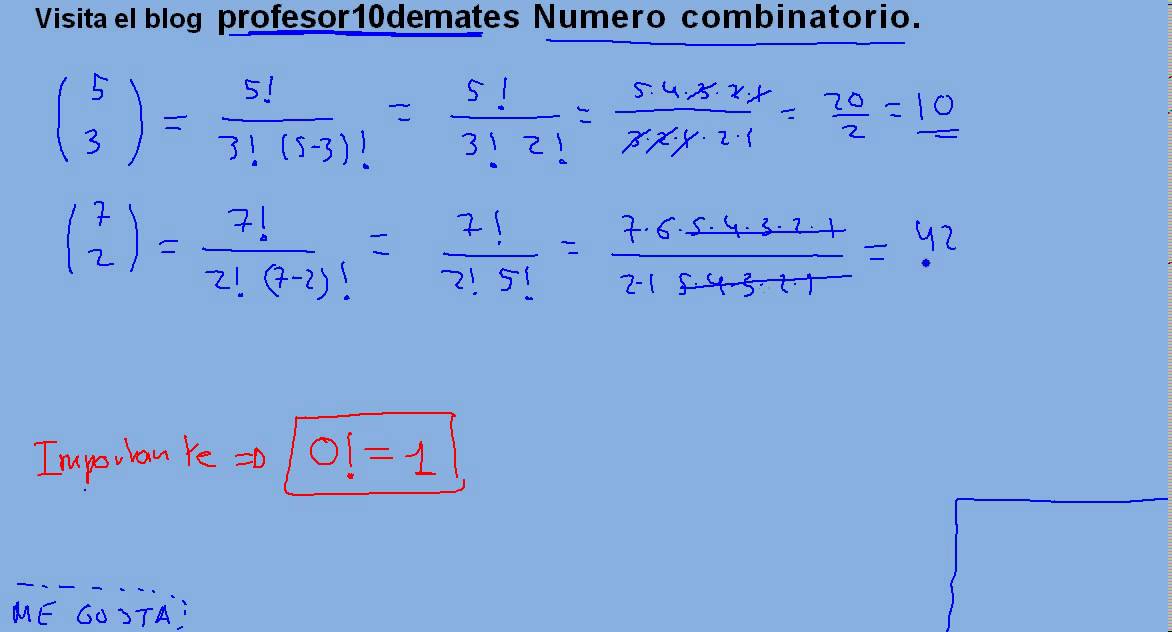 Visita el blog profesor10demates Numero combinatorio.
(5 3) = 5! / 3! (5-3)! = 5! / 3! 2! = 5·4·3·2·1 / 3·2·1·2·1 = 20/2 = 10
(7 2) = 7! / 2! (7-2)! = 7! / 2! 5! = 7·6·5·4·3·2·1 / 2·1 5·4·3·2·1 = 42
Importante ⇒ 0! = 1
ME GOSTA!